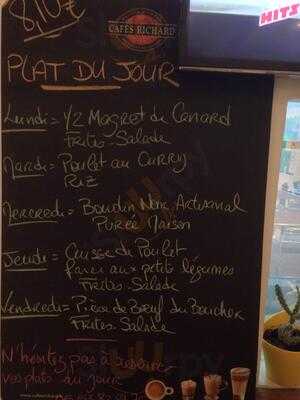 8,10€
CAFÉS RICHARD
HITS
PLAT DU JOUR
Lundi = 1/2 Magret de Canard
Frites-Salade
Mardi = Poulet au Curry
Riz
Mercredi = Boudin Noir Artisanal
Purée Maison
Jeudi = Cuisse de Poulet
farci aux petits légumes
Frites-Salade
Vendredi = Pièce de Boeuf du Boucher
Frites-Salade
N'hésitez pas à
vos plats au jour